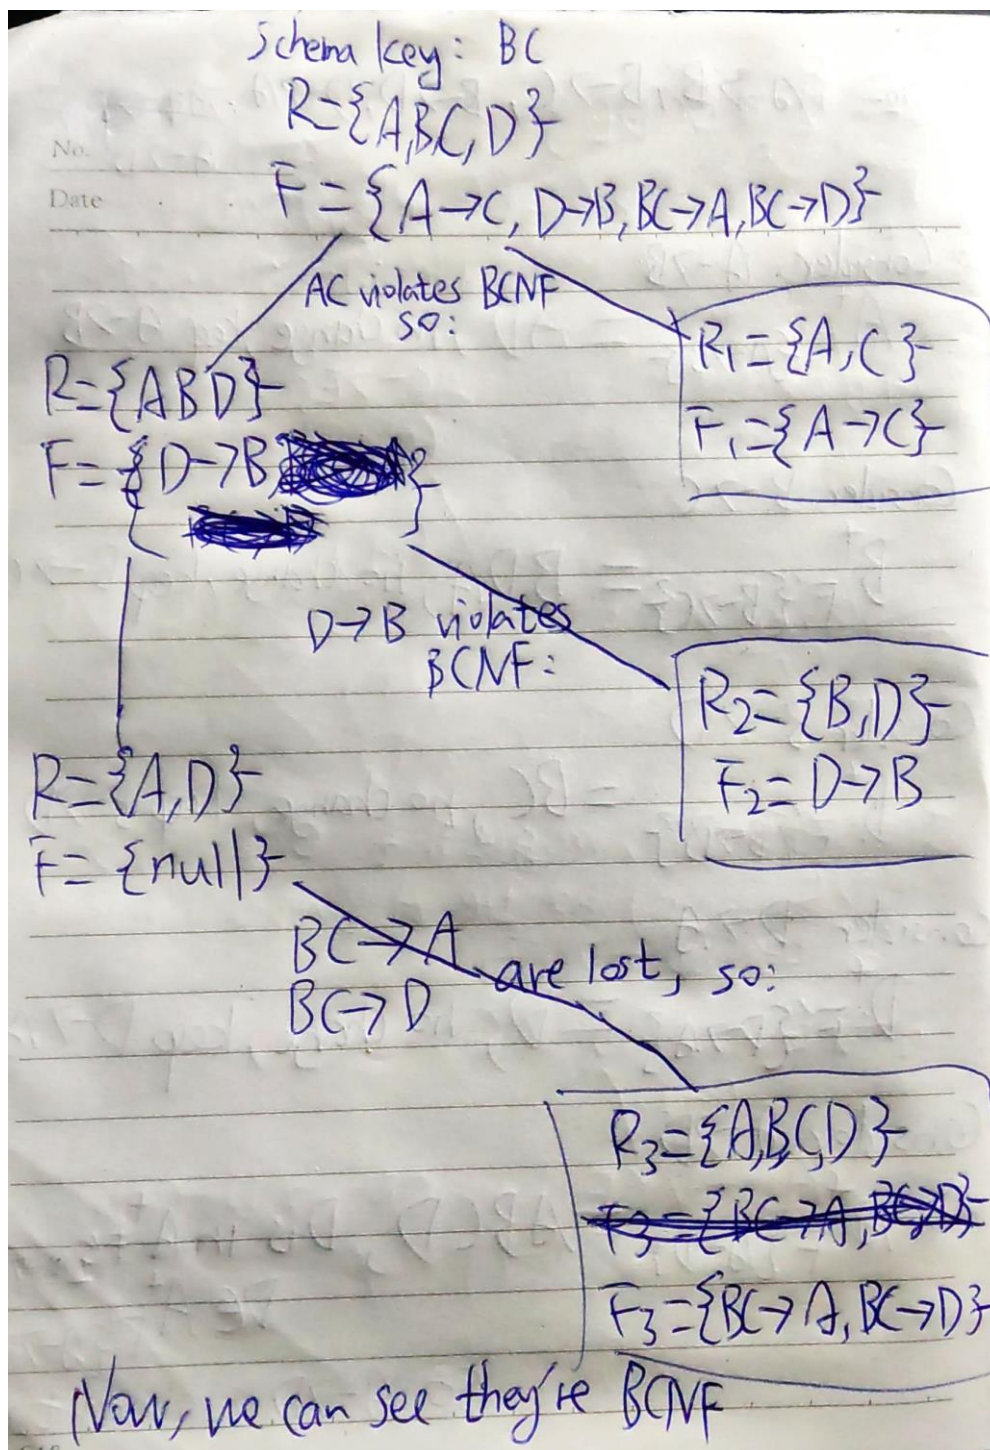 Schema key: BC
R={A,B,C,D}
No.
Date
F={A→C, D→B, BC→A, BC→D}
AC violates BCNF
so:
R1={A,C}
F1={A→C}
R={ABD}
F={D→B,
}
D→B violates
BCNF:
R2={B,D}
F2=D→B
R={A,D}
F={null}
BC→A
BC→D
are lost, so:
R3={A,B,C,D}
F3={BC→A, BC→D}
F3={BC→A, BC→D}
Now, we can see they're BCNF